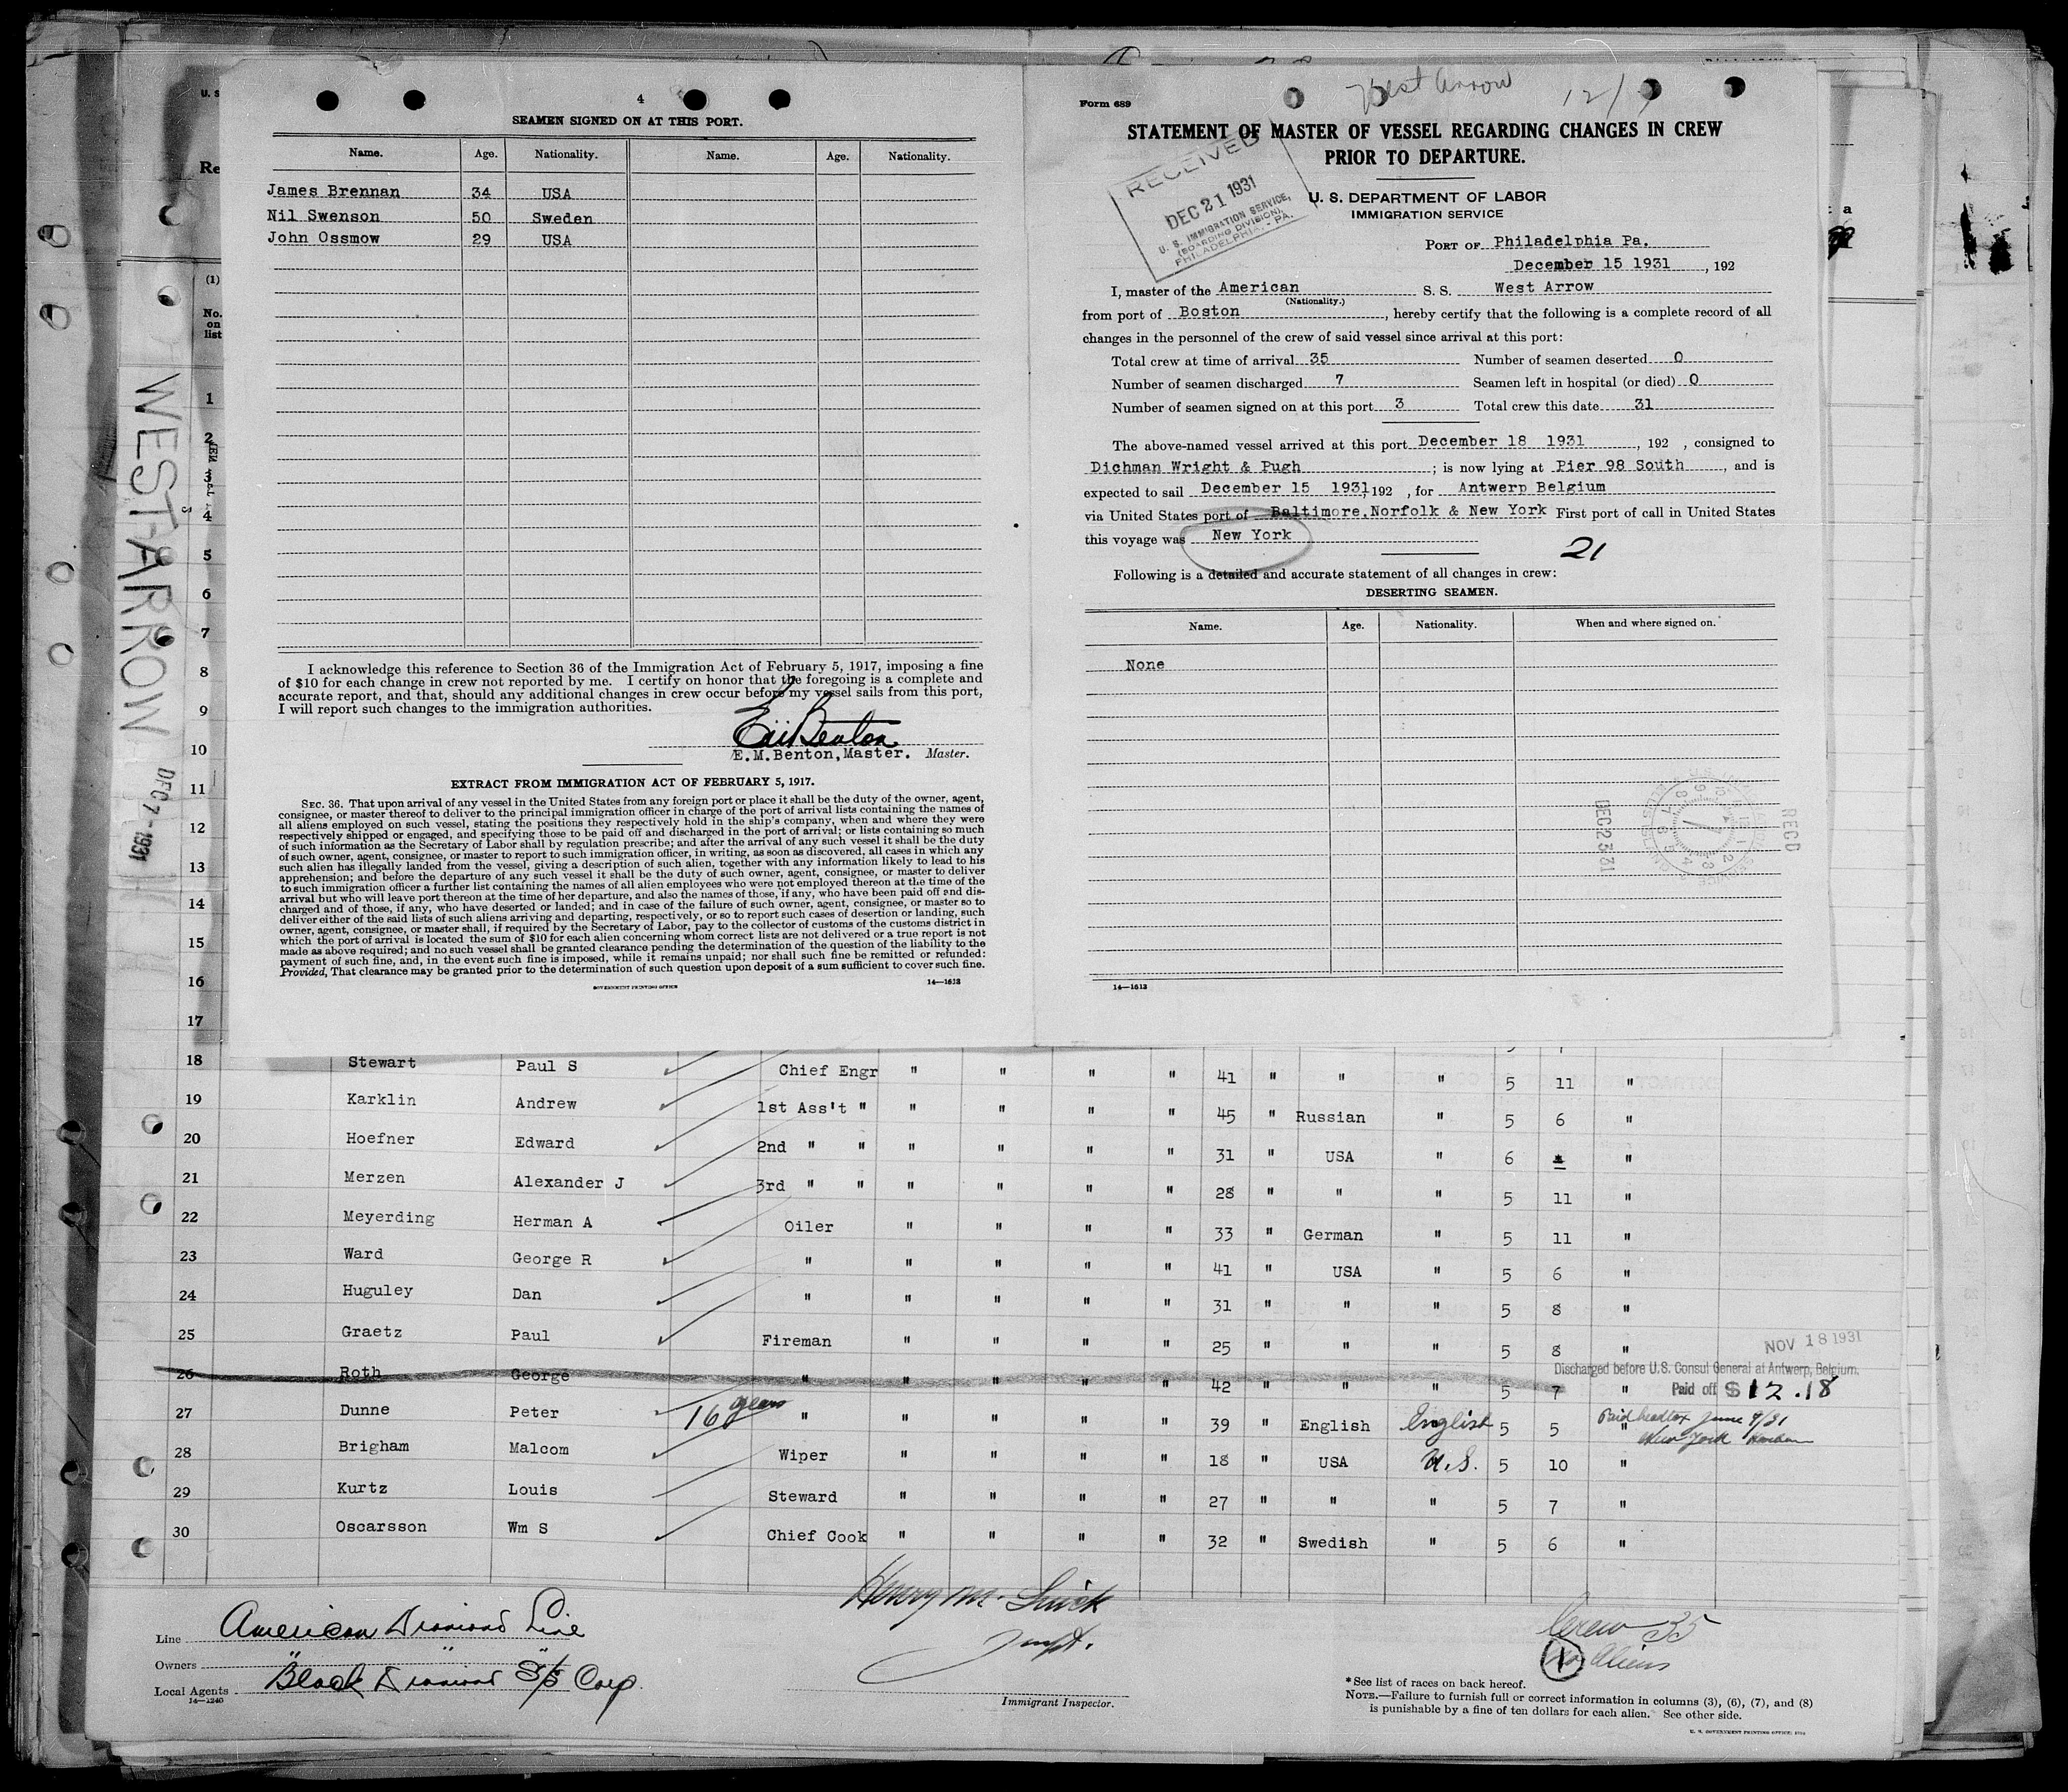 4
SEAMEN SIGNED ON AT THIS PORT.
Name. Age. Nationality. Name. Age. Nationality.
James Brennan 34 USA
Nil Swenson 50 Sweden
John Ossmow 29 USA
I acknowledge this reference to Section 36 of the Immigration Act of February 5, 1917, imposing a fine
of $10 for each change in crew not reported by me. I certify on honor that the foregoing is a complete and
accurate report, and that, should any additional changes in crew occur before my vessel sails from this port,
I will report such changes to the immigration authorities.
E.M.Benton,Master. Master.
EXTRACT FROM IMMIGRATION ACT OF FEBRUARY 5, 1917.
SEC. 36. That upon arrival of any vessel in the United States from any foreign port or place it shall be the duty of the owner, agent,
consignee, or master thereof to deliver to the principal immigration officer in charge of the port of arrival lists containing the names of
all aliens employed on such vessel, stating the positions they respectively hold in the ship's company, when and where they were
respectively shipped or engaged, and specifying those to be paid off and discharged in the port of arrival; or lists containing so much
of such information as the Secretary of Labor shall by regulation prescribe; and after the arrival of any such vessel it shall be the duty
of such owner, agent, consignee, or master to report to such immigration officer, in writing, as soon as discovered, all cases in which any
such alien has illegally landed from the vessel, giving a description of such alien, together with any information likely to lead to his
apprehension; and before the departure of any such vessel it shall be the duty of such owner, agent, consignee, or master to deliver
to such immigration officer a further list containing the names of all alien employees who were not employed thereon at the time of the
arrival but who will leave port thereon at the time of her departure, and also the names of those, if any, who have been paid off and dis-
charged and of those, if any, who have deserted or landed; and in case of the failure of such owner, agent, consignee, or master so to
deliver either of the said lists of such aliens arriving and departing, respectively, or so to report such cases of desertion or landing, such
owner, agent, consignee, or master shall, if required by the Secretary of Labor, pay to the collector of customs of the customs district in
which the port of arrival is located the sum of $10 for each alien concerning whom correct lists are not delivered or a true report is not
made as above required; and no such vessel shall be granted clearance pending the determination of the question of the liability to the
payment of such fine, and, in the event such fine is imposed, while it remains unpaid; nor shall such fine be remitted or refunded:
Provided, That clearance may be granted prior to the determination of such question upon deposit of a sum sufficient to cover such fine.
GOVERNMENT PRINTING OFFICE 14—1613
West Arrow
Form 689
STATEMENT OF MASTER OF VESSEL REGARDING CHANGES IN CREW
PRIOR TO DEPARTURE.
RECEIVED
DEC 21 1931
U. S. IMMIGRATION SERVICE,
(BOARDING DIVISION)
PHILADELPHIA, - PA.
U. S. DEPARTMENT OF LABOR
IMMIGRATION SERVICE
PORT OF Philadelphia Pa.
December 15 1931 , 192
I, master of the American S. S. West Arrow
(Nationality.)
from port of Boston , hereby certify that the following is a complete record of all
changes in the personnel of the crew of said vessel since arrival at this port:
Total crew at time of arrival 35 Number of seamen deserted 0
Number of seamen discharged 7 Seamen left in hospital (or died) 0
Number of seamen signed on at this port 3 Total crew this date 31
The above-named vessel arrived at this port December 18 1931 , 192 , consigned to
Dichman Wright & Pugh ; is now lying at Pier 98 South , and is
expected to sail December 15 1931, 192 , for Antwerp Belgium
via United States port of Baltimore,Norfolk & New York First port of call in United States
this voyage was New York
21
Following is a detailed and accurate statement of all changes in crew:
DESERTING SEAMEN.
Name. Age. Nationality. When and where signed on.
None
REC'D
DEC 23 31
14—1613
WEST-ARROW DEC 7-1931
U. S
Re
(1)
No. on list
1
2
3
4
5
6
7
8
9
10
11
12
13
14
15
16
17
18 Stewart Paul S Chief Engr " " " " 41 " " " 5 11 "
19 Karklin Andrew 1st Ass't " " " " " 45 " Russian " 5 6 "
20 Hoefner Edward 2nd " " " " " " 31 " USA " 6 "
21 Merzen Alexander J 3rd " " " " " " 28 " " " 5 11 "
22 Meyerding Herman A Oiler " " " " 33 " German " 5 11 "
23 Ward George R " " " " " 41 " USA " 5 6 "
24 Huguley Dan " " " " " 31 " " " 5 8 "
25 Graetz Paul Fireman " " " " 25 " " " 5 8 "
NOV 18 1931
Discharged before U.S. Consul General at Antwerp, Belgium.
26 Roth George " " " " " 42 " " " 5 7 " Paid off $12.18
27 Dunne Peter 16 years " " " " " 39 " English English 5 5 " Paid headtax June 9/31
New York
28 Brigham Malcom Wiper " " " " 18 " USA U.S. 5 10 "
29 Kurtz Louis Steward " " " " 27 " " " 5 7 "
30 Oscarsson Wm S Chief Cook " " " " 32 " Swedish " 5 6 "
Line American Diamond Line
Owners " "
Local Agents Black Diamond S/S Corp.
14—1240
Immigrant Inspector.
Crew 35
1
Aliens
*See list of races on back hereof.
NOTE.—Failure to furnish full or correct information in columns (3), (6), (7), and (8)
is punishable by a fine of ten dollars for each alien. See other side.
U. S. GOVERNMENT PRINTING OFFICE